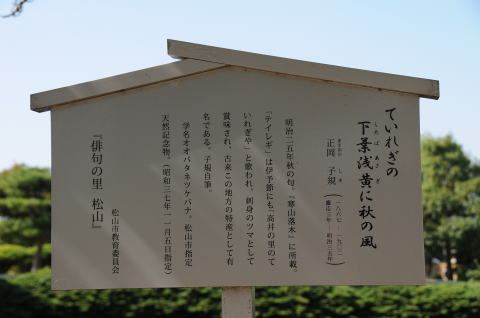 ていれぎの
下葉浅黄に秋の風
したばあさぎ
まさおか しき
正岡 子規
(一八六七―一九〇二)
(慶応三年―明治三五年)
明治二五年秋の句。『寒山落木』に所載。
「テイレギ」は伊予節にも『高井の里のて
いれぎや』と歌われ、刺身のツマとして
賞味され、古来この地方の特産として有
名である。子規自筆。
学名オオバタネツケバナ。松山市指定
天然記念物。(昭和三七年一一月五日指定)
『俳句の里 松山』
松山市教育委員会